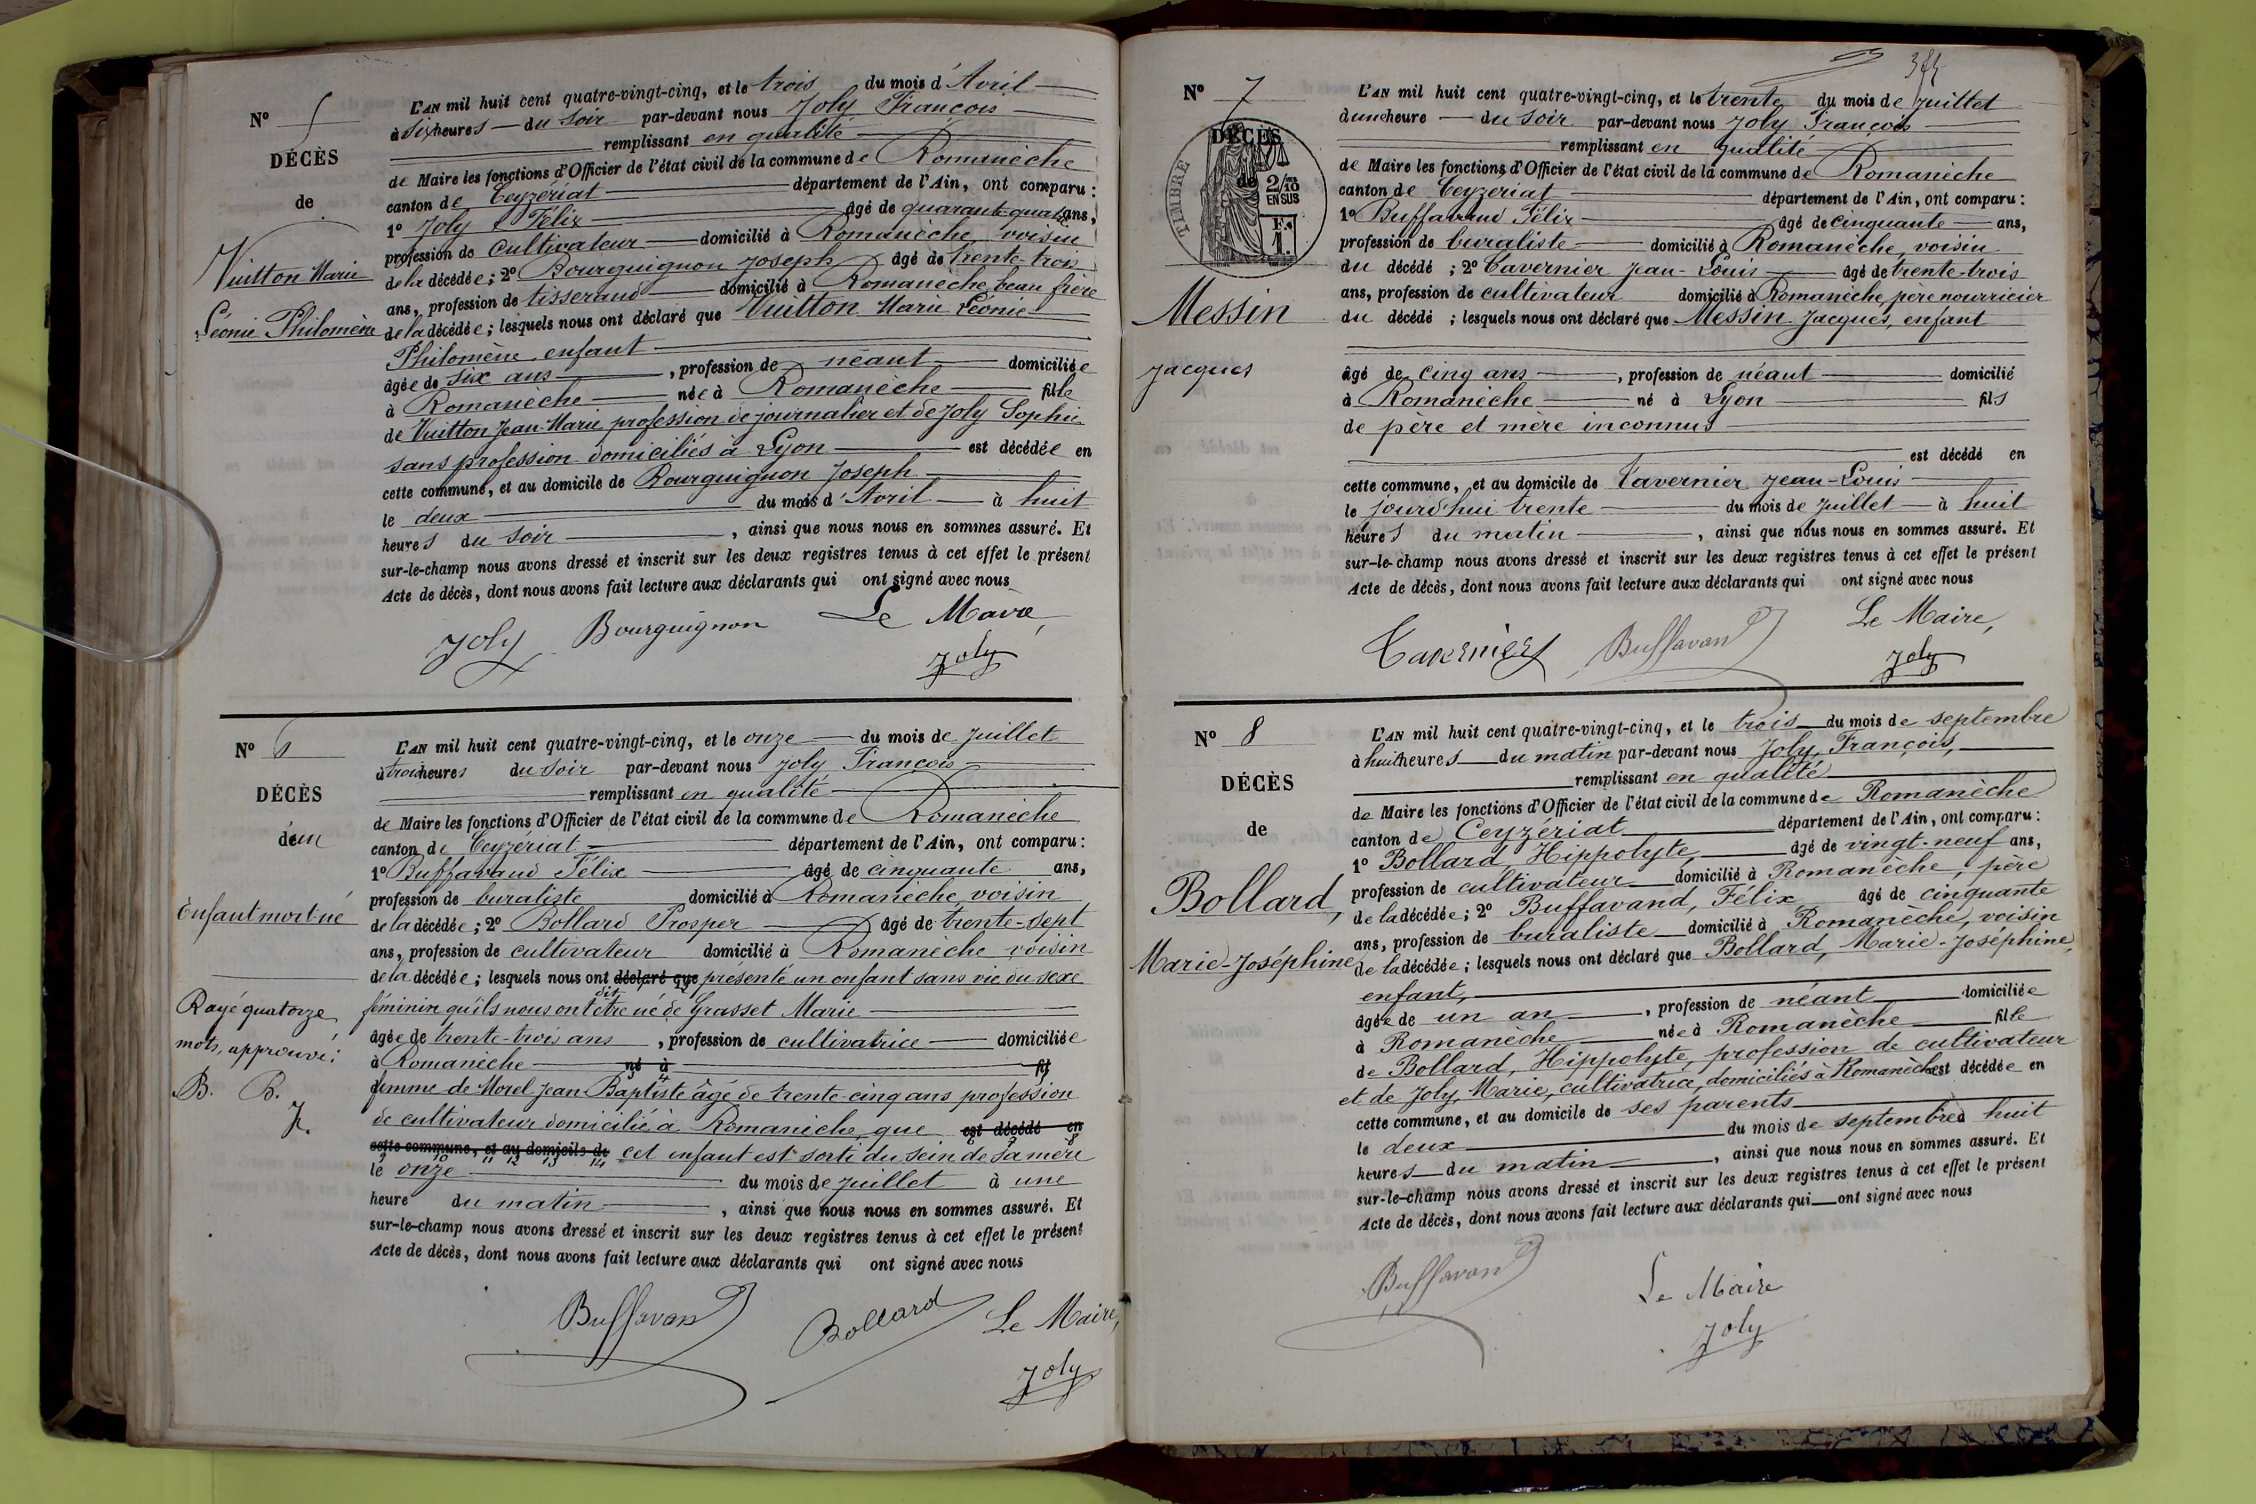 N° 5
DÉCÈS
de
Vuitton Marie
Léonie Philomène
L'AN mil huit cent quatre-vingt-cinq, et le trois du mois d'Avril
à six heures du soir par-devant nous Joly François
remplissant en qualité
de Maire les fonctions d'Officier de l'état civil de la commune de Romanèche
canton de Ceyzériat département de l'Ain, ont comparu :
1° Joly Félix âgé de quarante-quatre ans,
profession de cultivateur domicilié à Romanèche voisin
de la décédée ; 2° Bourguignon Joseph âgé de trente-trois
ans, profession de tisserand domicilié à Romanèche, beau frère
de la décédée ; lesquels nous ont déclaré que Vuitton Marie Léonie
Philomène, enfant
âgée de six ans , profession de néant domiciliée
à Romanèche née à Romanèche fille
de Vuitton Jean-Marie profession de journalier et de Joly Sophie
sans profession domiciliés à Lyon est décédée en
cette commune, et au domicile de Bourguignon Joseph
le deux du mois d'Avril à huit
heures du soir , ainsi que nous nous en sommes assuré. Et
sur-le-champ nous avons dressé et inscrit sur les deux registres tenus à cet effet le présent
Acte de décès, dont nous avons fait lecture aux déclarants qui ont signé avec nous
Joly Bourguignon Le Maire,
Joly
N° 6
DÉCÈS
d'un
Enfant mort né
Rayé quatorze
mots, approuvé :
B. B.
J.
L'AN mil huit cent quatre-vingt-cinq, et le onze du mois de Juillet
à trois heures du soir par-devant nous Joly François
remplissant en qualité
de Maire les fonctions d'Officier de l'état civil de la commune de Romanèche
canton de Ceyzériat département de l'Ain, ont comparu :
1° Buffavand Félix âgé de cinquante ans,
profession de buraliste domicilié à Romanèche, voisin
de la décédée ; 2° Bollard Prosper âgé de trente-sept
ans, profession de cultivateur domicilié à Romanèche voisin
de la décédée ; lesquels nous ont déclaré que présenté un enfant sans vie du sexe
féminin qu'ils nous ont dit être né de Grasset Marie
âgée de trente-trois ans , profession de cultivatrice domiciliée
à Romanèche né à fils
femme de Morel Jean Baptiste âgé de trente-cinq ans profession
de cultivateur domicilié à Romanèche, que est décédé en
cette commune, et au domicile de cet enfant est sorti du sein de sa mère
le onze du mois de Juillet à une
heure du matin , ainsi que nous nous en sommes assuré. Et
sur-le-champ nous avons dressé et inscrit sur les deux registres tenus à cet effet le présent
Acte de décès, dont nous avons fait lecture aux déclarants qui ont signé avec nous
Buffavand Bollard Le Maire,
Joly
N° 7
DÉCÈS
de
TIMBRE
2/10 EN SUS
Fc. 1.
Messin
Jacques
L'AN mil huit cent quatre-vingt-cinq, et le trente du mois de Juillet
d'une heure du soir par-devant nous Joly François
remplissant en qualité
de Maire les fonctions d'Officier de l'état civil de la commune de Romanèche
canton de Ceyzériat département de l'Ain, ont comparu :
1° Buffavand Félix âgé de cinquante ans,
profession de buraliste domicilié à Romanèche, voisin
du décédé ; 2° Tavernier Jean-Louis âgé de trente-trois
ans, profession de cultivateur domicilié à Romanèche, père nourricier
du décédé ; lesquels nous ont déclaré que Messin Jacques, enfant
âgé de cinq ans , profession de néant domicilié
à Romanèche né à Lyon fils
de père et mère inconnus
est décédé en
cette commune, et au domicile de Tavernier Jean-Louis
le jourd'hui trente du mois de Juillet à huit
heures du matin , ainsi que nous nous en sommes assuré. Et
sur-le-champ nous avons dressé et inscrit sur les deux registres tenus à cet effet le présent
Acte de décès, dont nous avons fait lecture aux déclarants qui ont signé avec nous
Tavernier Buffavand Le Maire,
Joly
N° 8
DÉCÈS
de
Bollard,
Marie-Joséphine
L'AN mil huit cent quatre-vingt-cinq, et le trois du mois de septembre
à huit heures du matin par-devant nous Joly, François,
remplissant en qualité
de Maire les fonctions d'Officier de l'état civil de la commune de Romanèche
canton de Ceyzériat département de l'Ain, ont comparu :
1° Bollard, Hippolyte, âgé de vingt-neuf ans,
profession de cultivateur domicilié à Romanèche, père
de la décédée ; 2° Buffavand, Félix âgé de cinquante
ans, profession de buraliste domicilié à Romanèche, voisin
de la décédée ; lesquels nous ont déclaré que Bollard, Marie-Joséphine,
enfant,
âgée de un an , profession de néant domiciliée
à Romanèche née à Romanèche fille
de Bollard, Hippolyte, profession de cultivateur
et de Joly, Marie, cultivatrice, domiciliés à Romanèche est décédée en
cette commune, et au domicile de ses parents
le deux du mois de septembre à huit
heures du matin , ainsi que nous nous en sommes assuré. Et
sur-le-champ nous avons dressé et inscrit sur les deux registres tenus à cet effet le présent
Acte de décès, dont nous avons fait lecture aux déclarants qui ont signé avec nous
Buffavand Le Maire
Joly